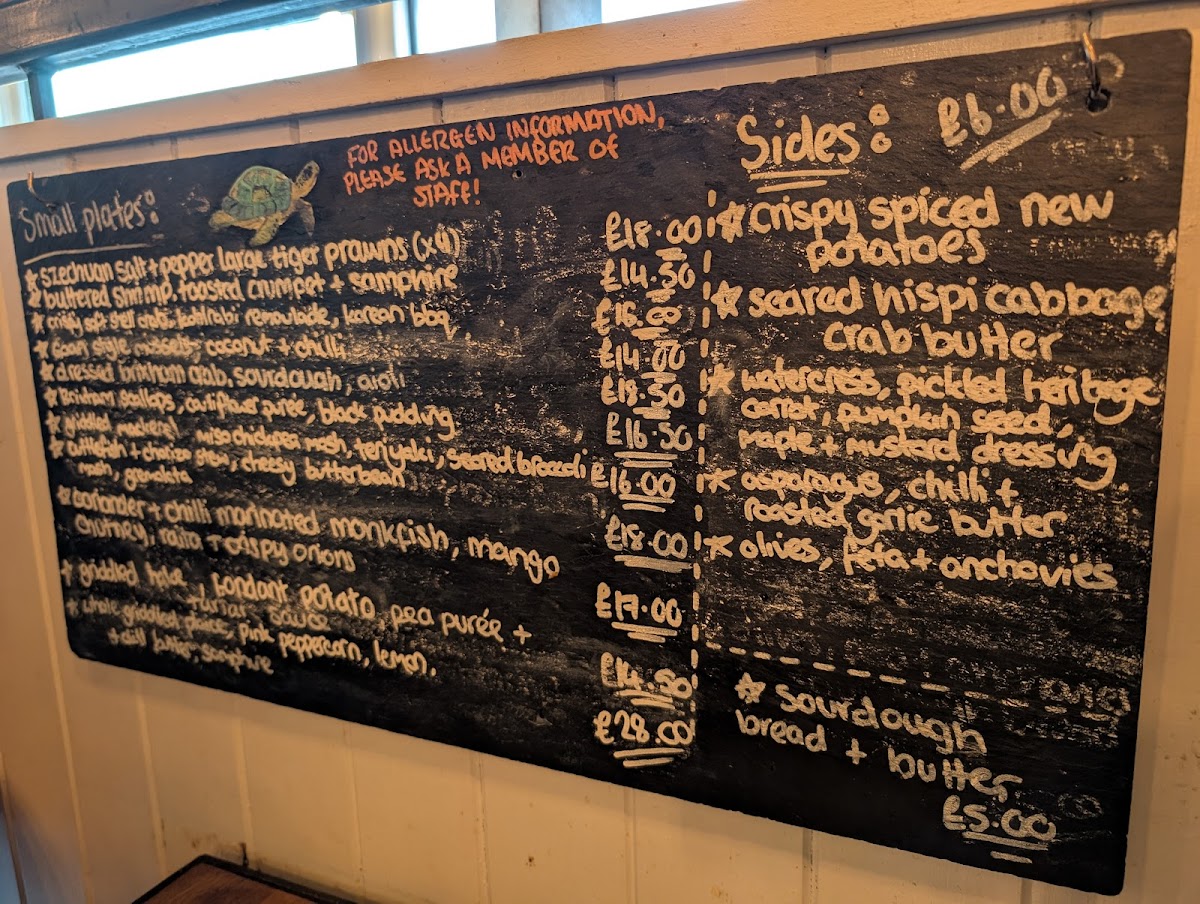 FOR ALLERGEN INFORMATION,
PLEASE ASK A MEMBER OF
STAFF!
Small plates:
szechuan salt + pepper large tiger prawns (x4) £18.00
buttered shrimp, toasted crumpet + samphire £14.50
crispy soft shell crab, kohlrabi remoulade, korean bbq £16.00
style mussels, coconut + chilli £14.00
dressed brixham crab, sourdough, aioli £13.50
Brixham scallops, cauliflower purée, black pudding £16.50
griddled mackerel, miso chickpea mash, teriyaki, seared broccoli £16.00
cuttlefish + chorizo stew, cheesy butterbean
mash, gremolata £18.00
coriander + chilli marinated monkfish, mango
chutney, raita + crispy onions £17.00
griddled hake, fondant potato, pea purée +
tartar sauce £14.50
whole griddled plaice, pink peppercorn, lemon,
+ dill butter, samphire £28.00
Sides: £6.00
crispy spiced new
potatoes
seared hispi cabbage
crab butter
watercress, pickled heritage
carrot, pumpkin seed,
maple + mustard dressing
asparagus, chilli +
roasted garlic butter
olives, feta + anchovies
sourdough
bread + butter
£5.00